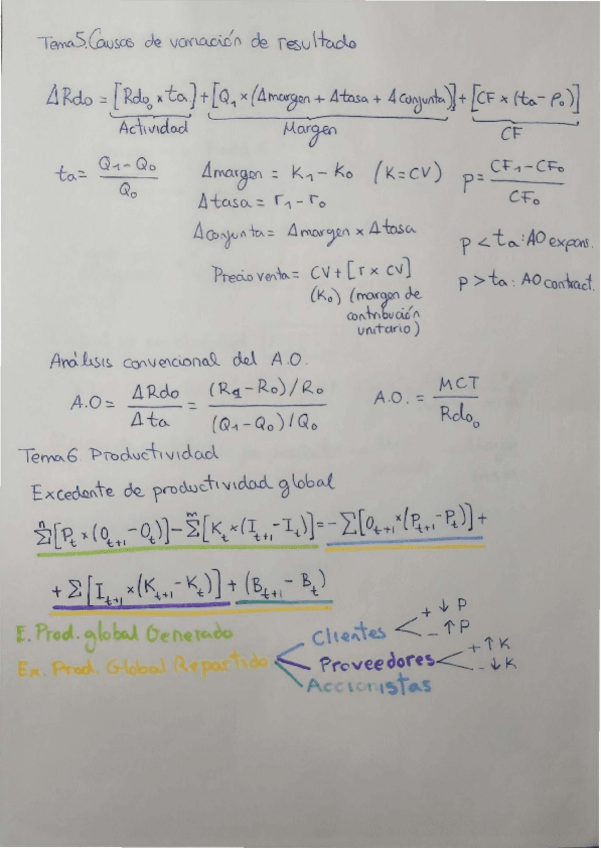 Tema5. Causas de variación de resultado
Δ Rdo = [Rdo₀ × ta] + [Q₁ × (Δmargen + Δtasa + Δconjunta)] + [CF × (ta - P₀)]
Actividad Margen CF
ta = (Q₁-Q₀)/Q₀ Δmargen = K₁ - K₀ (K=CV) p = (CF₁-CF₀)/CF₀
Δtasa = r₁ - r₀
Δconjunta = Δmargen × Δtasa
p < ta : AO expans.
Precio venta = CV + [r × CV]
p > ta : AO contract.
(K₀) (margen de
contribución
unitario)
Análisis convencional del A.O.
A.O = ΔRdo/Δta = (R₁-R₀)/R₀ / (Q₁-Q₀)/Q₀ A.O. = MCT/Rdo₀
Tema 6 Productividad
Excedente de productividad global
Σⁿ[Pt × (Ot+1 - Ot)] - Σᵐ[Kt × (It+1 - It)] = - Σ[Ot+1 × (Pt+1 - Pt)] +
+ Σ[It+1 × (Kt+1 - Kt)] + (Bt+1 - Bt)
E. Prod. global Generado
Clientes + ↓ P
- ↑ P
Ex. Prod. Global Repartido
Proveedores + ↑ K
- ↓ K
Accionistas